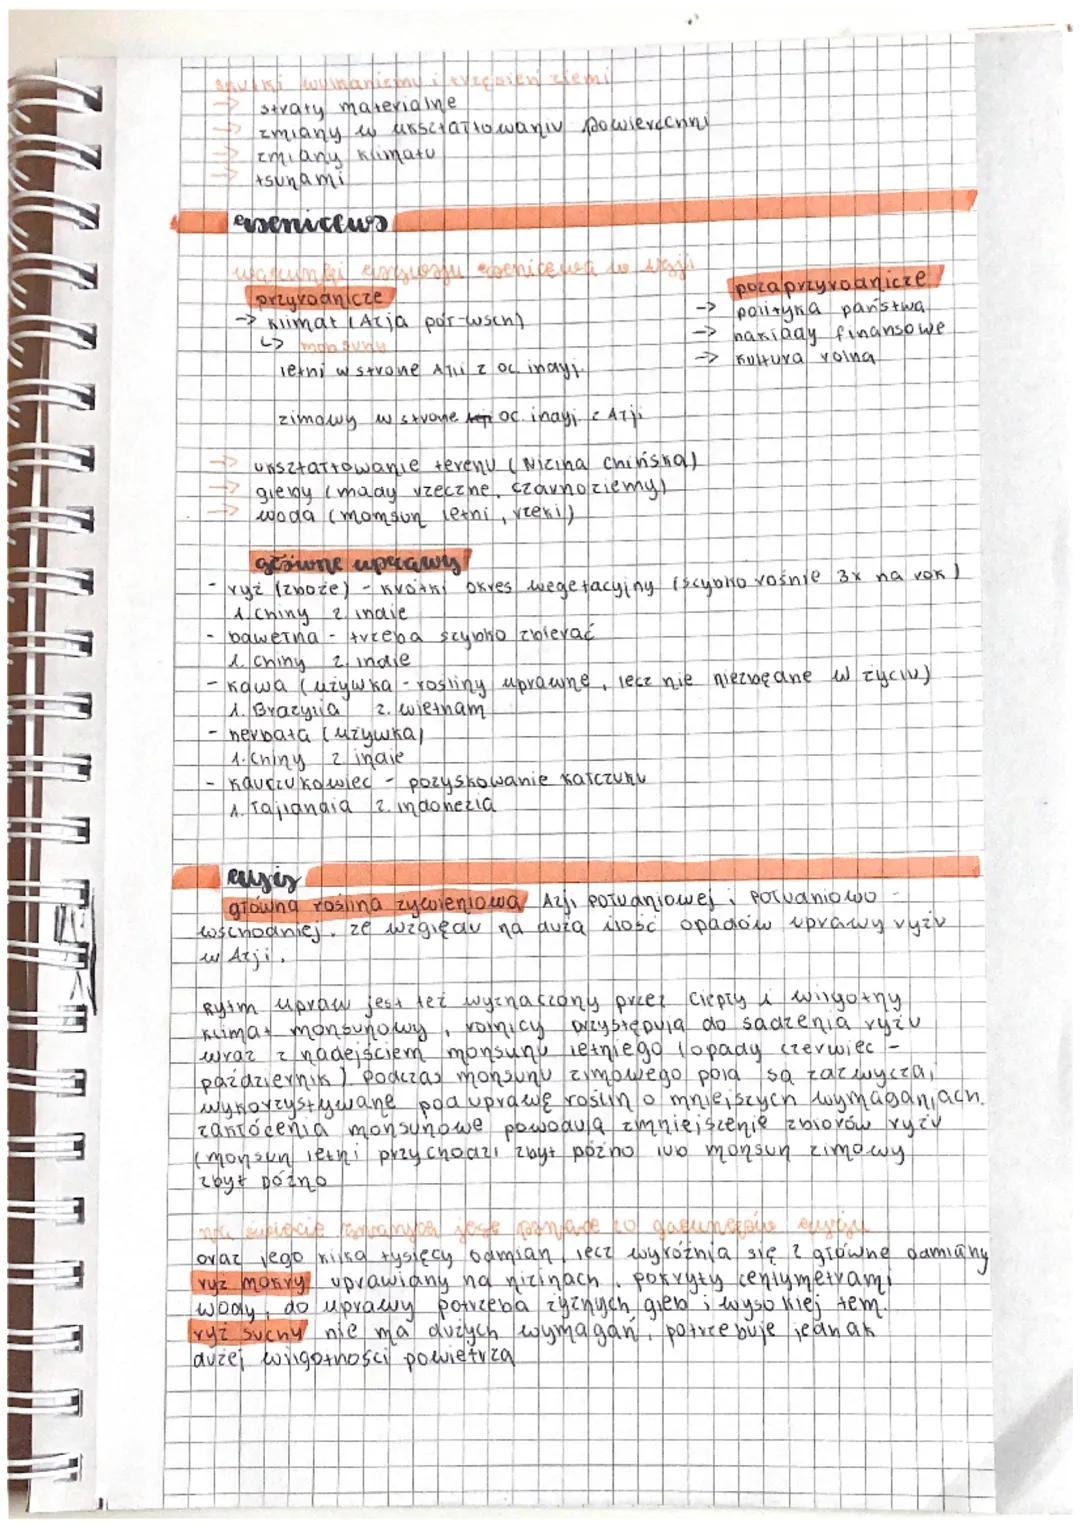 skutki wulkanizmu i trzęsień ziemi
-> straty materialne
-> zmiany w ukształtowaniu powierzchni
-> zmiany klimatu
-> tsunami
rolnictwo
warunki rozwoju rolnictwa w Azji
przyrodnicze
-> klimat (Azja płr-wsch)
↳ monsuny
letni w stronę Azji z oc. indyj.
zimowy w stronę oc. indyj z Azji
-> ukształtowanie terenu (Nizina chińska)
-> gleby (mady rzeczne, czarnoziemy)
-> woda (momsun letni, rzeki)
pozaprzyrodnicze
-> polityka państwa
-> nakłady finansowe
-> kultura rolna
główne uprawy
- ryż (zboże) - krótki okres wegetacyjny (szybko rośnie 3x na rok)
1. Chiny 2. indie
- bawełna - trzeba szybko zbierać
1. Chiny 2. indie
- kawa (używka - rośliny uprawne, lecz nie niezbędne w życiu)
1. Brazylia 2. wietnam
- herbata (używka)
1. Chiny 2. indie
- kauczukowiec - pozyskowanie kałczuku
1. Tajlandia 2. indonezja
ryż
główna roślina żywieniowa Azji południowej i południowo -
wschodniej. ze względu na dużą ilość opadów uprawy ryżu
w Azji.
Rytm upraw jest też wyznaczony przez ciepły i wilgotny
klimat monsunowy, rolnicy przystępują do sadzenia ryżu
wraz z nadejściem monsunu letniego (opady czerwiec -
październik). Podczas monsunu zimowego pola są zazwyczaj
wykorzystywane pod uprawę roślin o mniejszych wymaganiach.
zakłócenia monsunowe powodują zmniejszenie zbiorów ryżu
(monsun letni przychodzi zbyt późno lub monsun zimowy
zbyt późno
na świecie znanych jest ponad 20 gatunków ryżu
oraz jego kilka tysięcy odmian, lecz wyróżnia się 2 główne odmiany
ryż mokry uprawiany na nizinach, pokryty centymetrami
wody, do uprawy potrzeba żyznych gleb i wysokiej tem.
ryż suchy nie ma dużych wymagań, potrzebuje jednak
dużej wilgotności powietrza